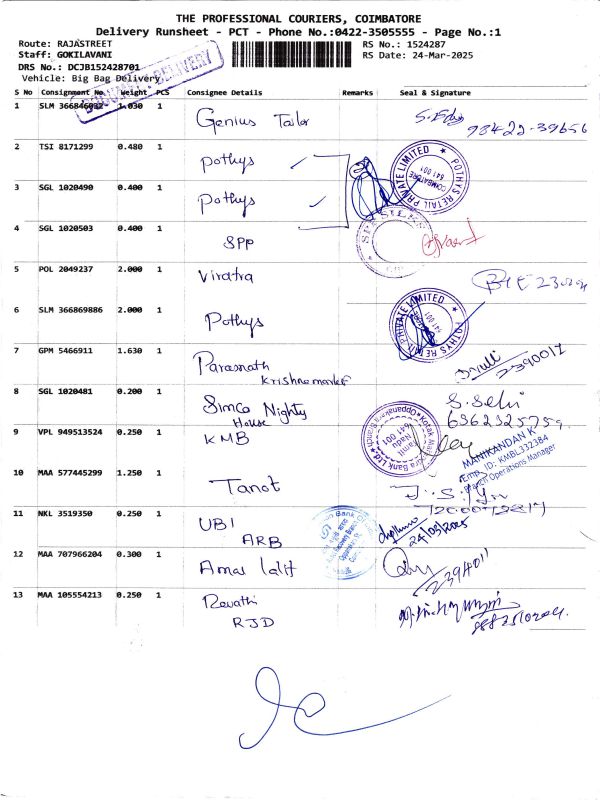 THE PROFESSIONAL COURIERS, COIMBATORE
Delivery Runsheet - PCT - Phone No.:0422-3505555 - Page No.:1
Route: RAJASTREET
RS No.: 1524287
Staff: GOKILAVANI
RS Date: 24-Mar-2025
DRS No.: DCJB152428701
Vehicle: Big Bag Delivery
DELIVERY
S No Consignment No. Weight PCS Consignee Details Remarks Seal & Signature
1 SLM 366846032 1.030 1 Genius Tailor
98422-39656
2 TSI 8171299 0.480 1 Pothys
POTHYS RETAIL PRIVATE LIMITED
COIMBATORE
641 001
3 SGL 1020490 0.400 1 Pothys
4 SGL 1020503 0.400 1 SPP
5 POL 2049237 2.000 1 Viratra
6 SLM 366869886 2.000 1 Pothys
POTHYS RETAIL PRIVATE LIMITED
641 001
7 GPM 5466911 1.630 1 Parasnath
Krishna market
8 SGL 1020481 0.200 1 Simco Nighty
House
9 VPL 949513524 0.250 1 KMB
Tamil
Nadu
641 001
MANIKANDAN K
Emp. ID: KMBL332384
Branch Operations Manager
10 MAA 577445299 1.250 1 Tanot
11 NKL 3519350 0.250 1 UBI
ARB
24/03/2025
12 MAA 707966204 0.300 1 Amar Lalit
2394011
13 MAA 105554213 0.250 1 Revathi
RJD